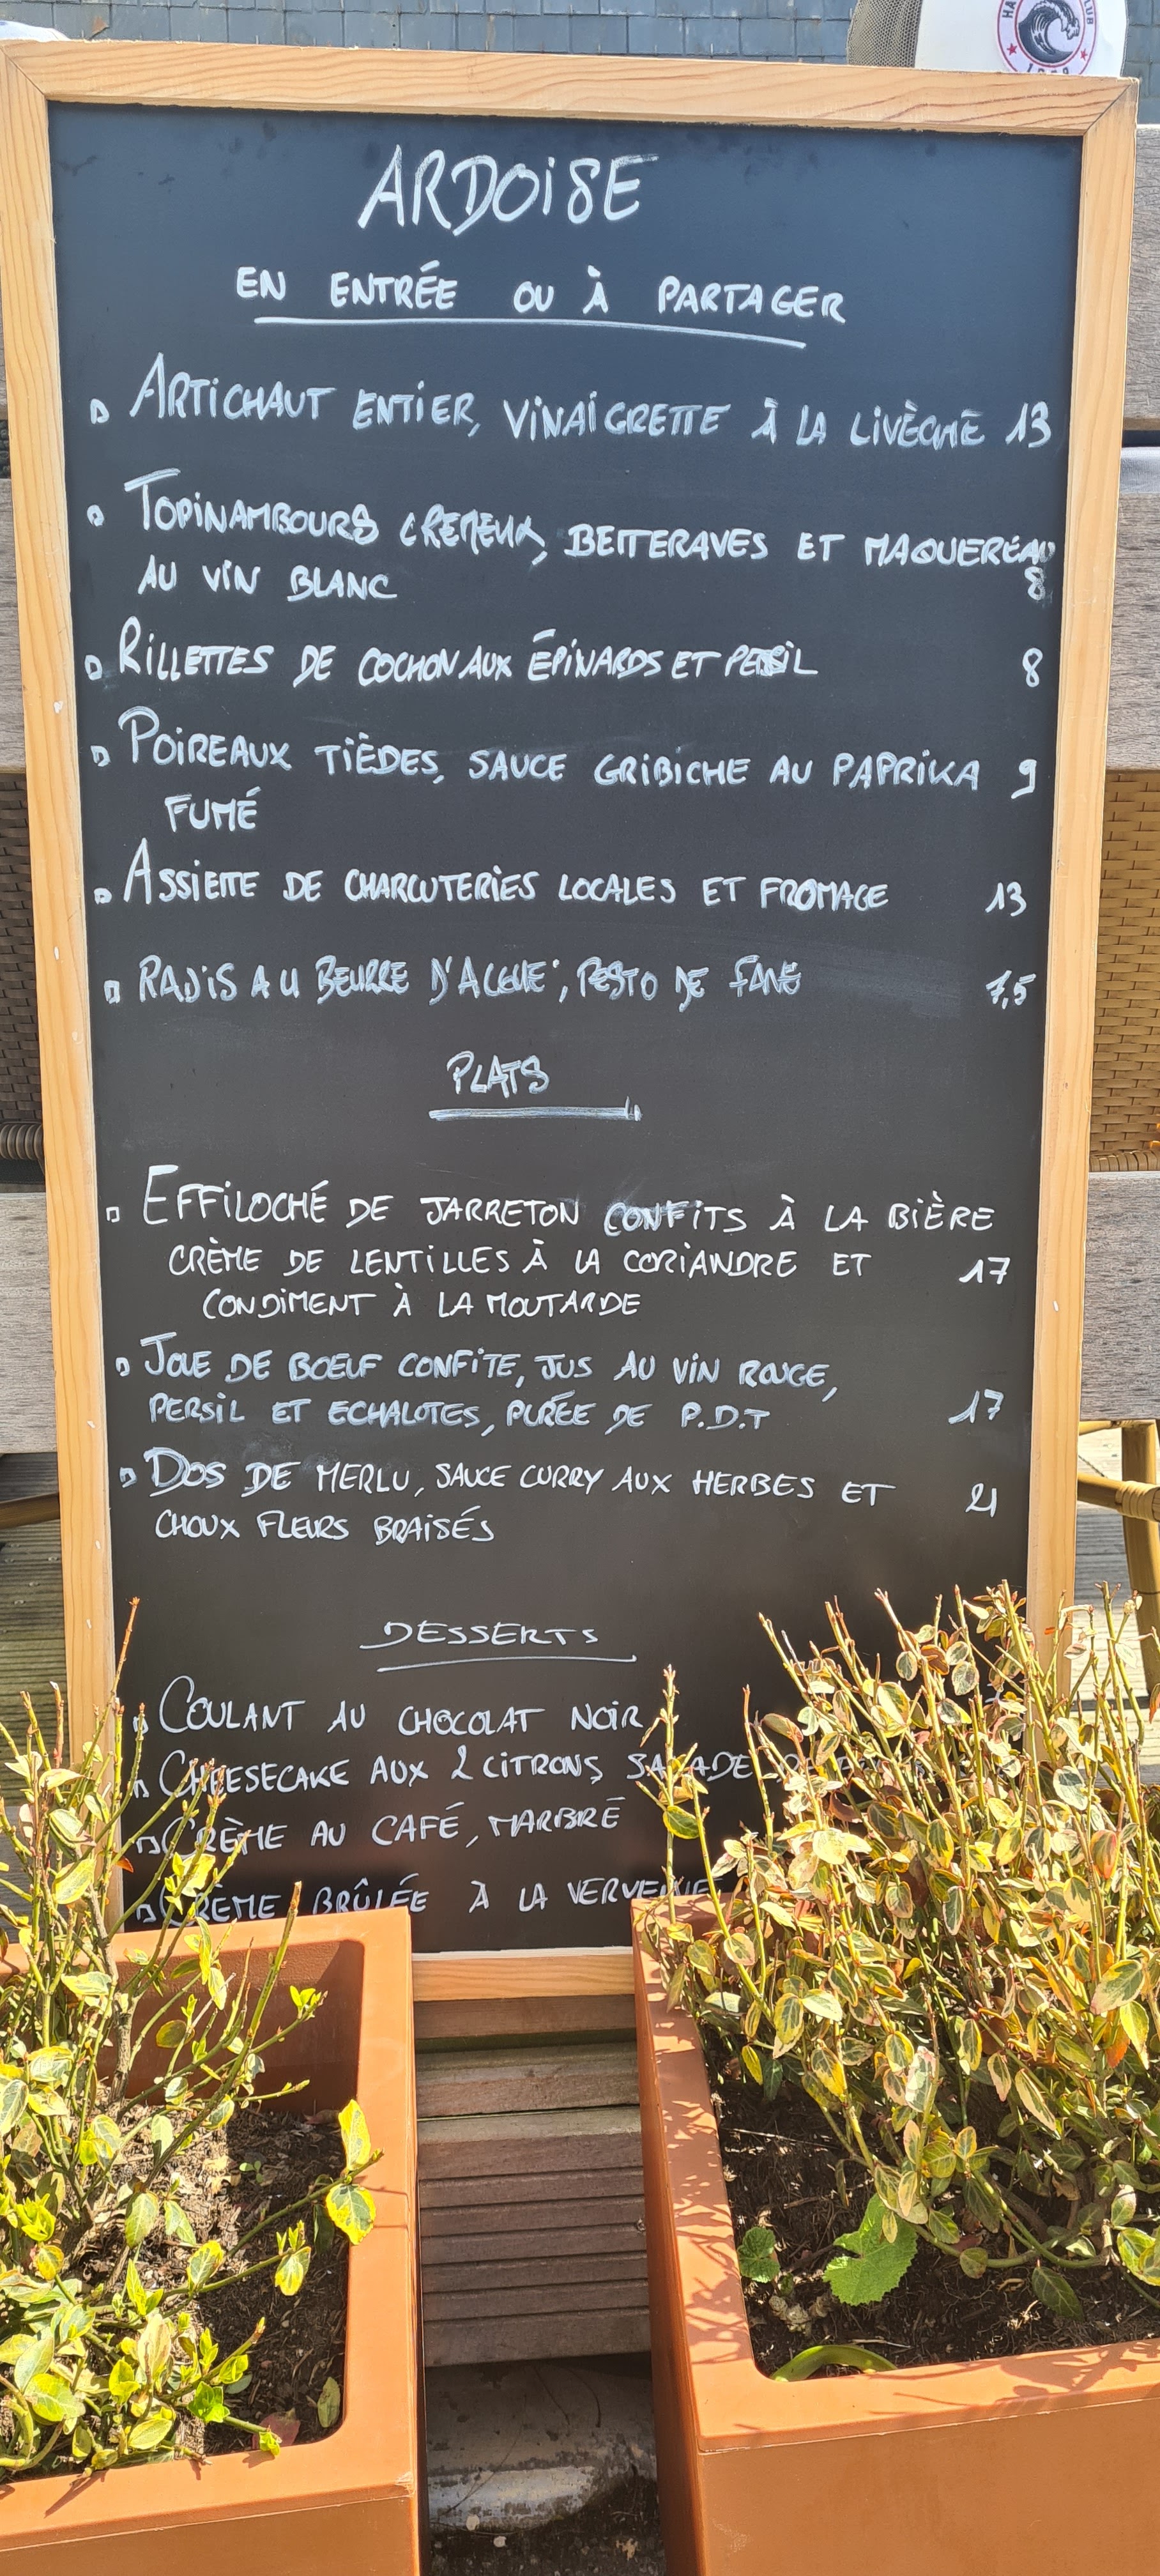 ARDOISE
EN ENTRÉE OU À PARTAGER
ARTICHAUT ENTIER, VINAIGRETTE À LA LIVÈCHE 13
TOPINAMBOURS CREMEUX, BETTERAVES ET MAQUEREAU
AU VIN BLANC 8
RILLETTES DE COCHON AUX ÉPINARDS ET PERSIL 8
POIREAUX TIÈDES, SAUCE GRIBICHE AU PAPRIKA 9
FUMÉ
ASSIETTE DE CHARCUTERIES LOCALES ET FROMAGE 13
RADIS AU BEURRE D'ALGUE, PESTO DE FANE 7,5
PLATS
EFFILOCHÉ DE JARRETON CONFITS À LA BIÈRE
CRÈME DE LENTILLES À LA CORIANDRE ET 17
CONDIMENT À LA MOUTARDE
JOUE DE BOEUF CONFITE, JUS AU VIN ROUGE,
PERSIL ET ECHALOTES, PURÉE DE P.D.T 17
DOS DE MERLU, SAUCE CURRY AUX HERBES ET 21
CHOUX FLEURS BRAISÉS
DESSERTS
COULANT AU CHOCOLAT NOIR
CHEESECAKE AUX 2 CITRONS, SALADE
CRÈME AU CAFÉ, MARBRÉ
CRÈME BRÛLÉE À LA VERVEINE